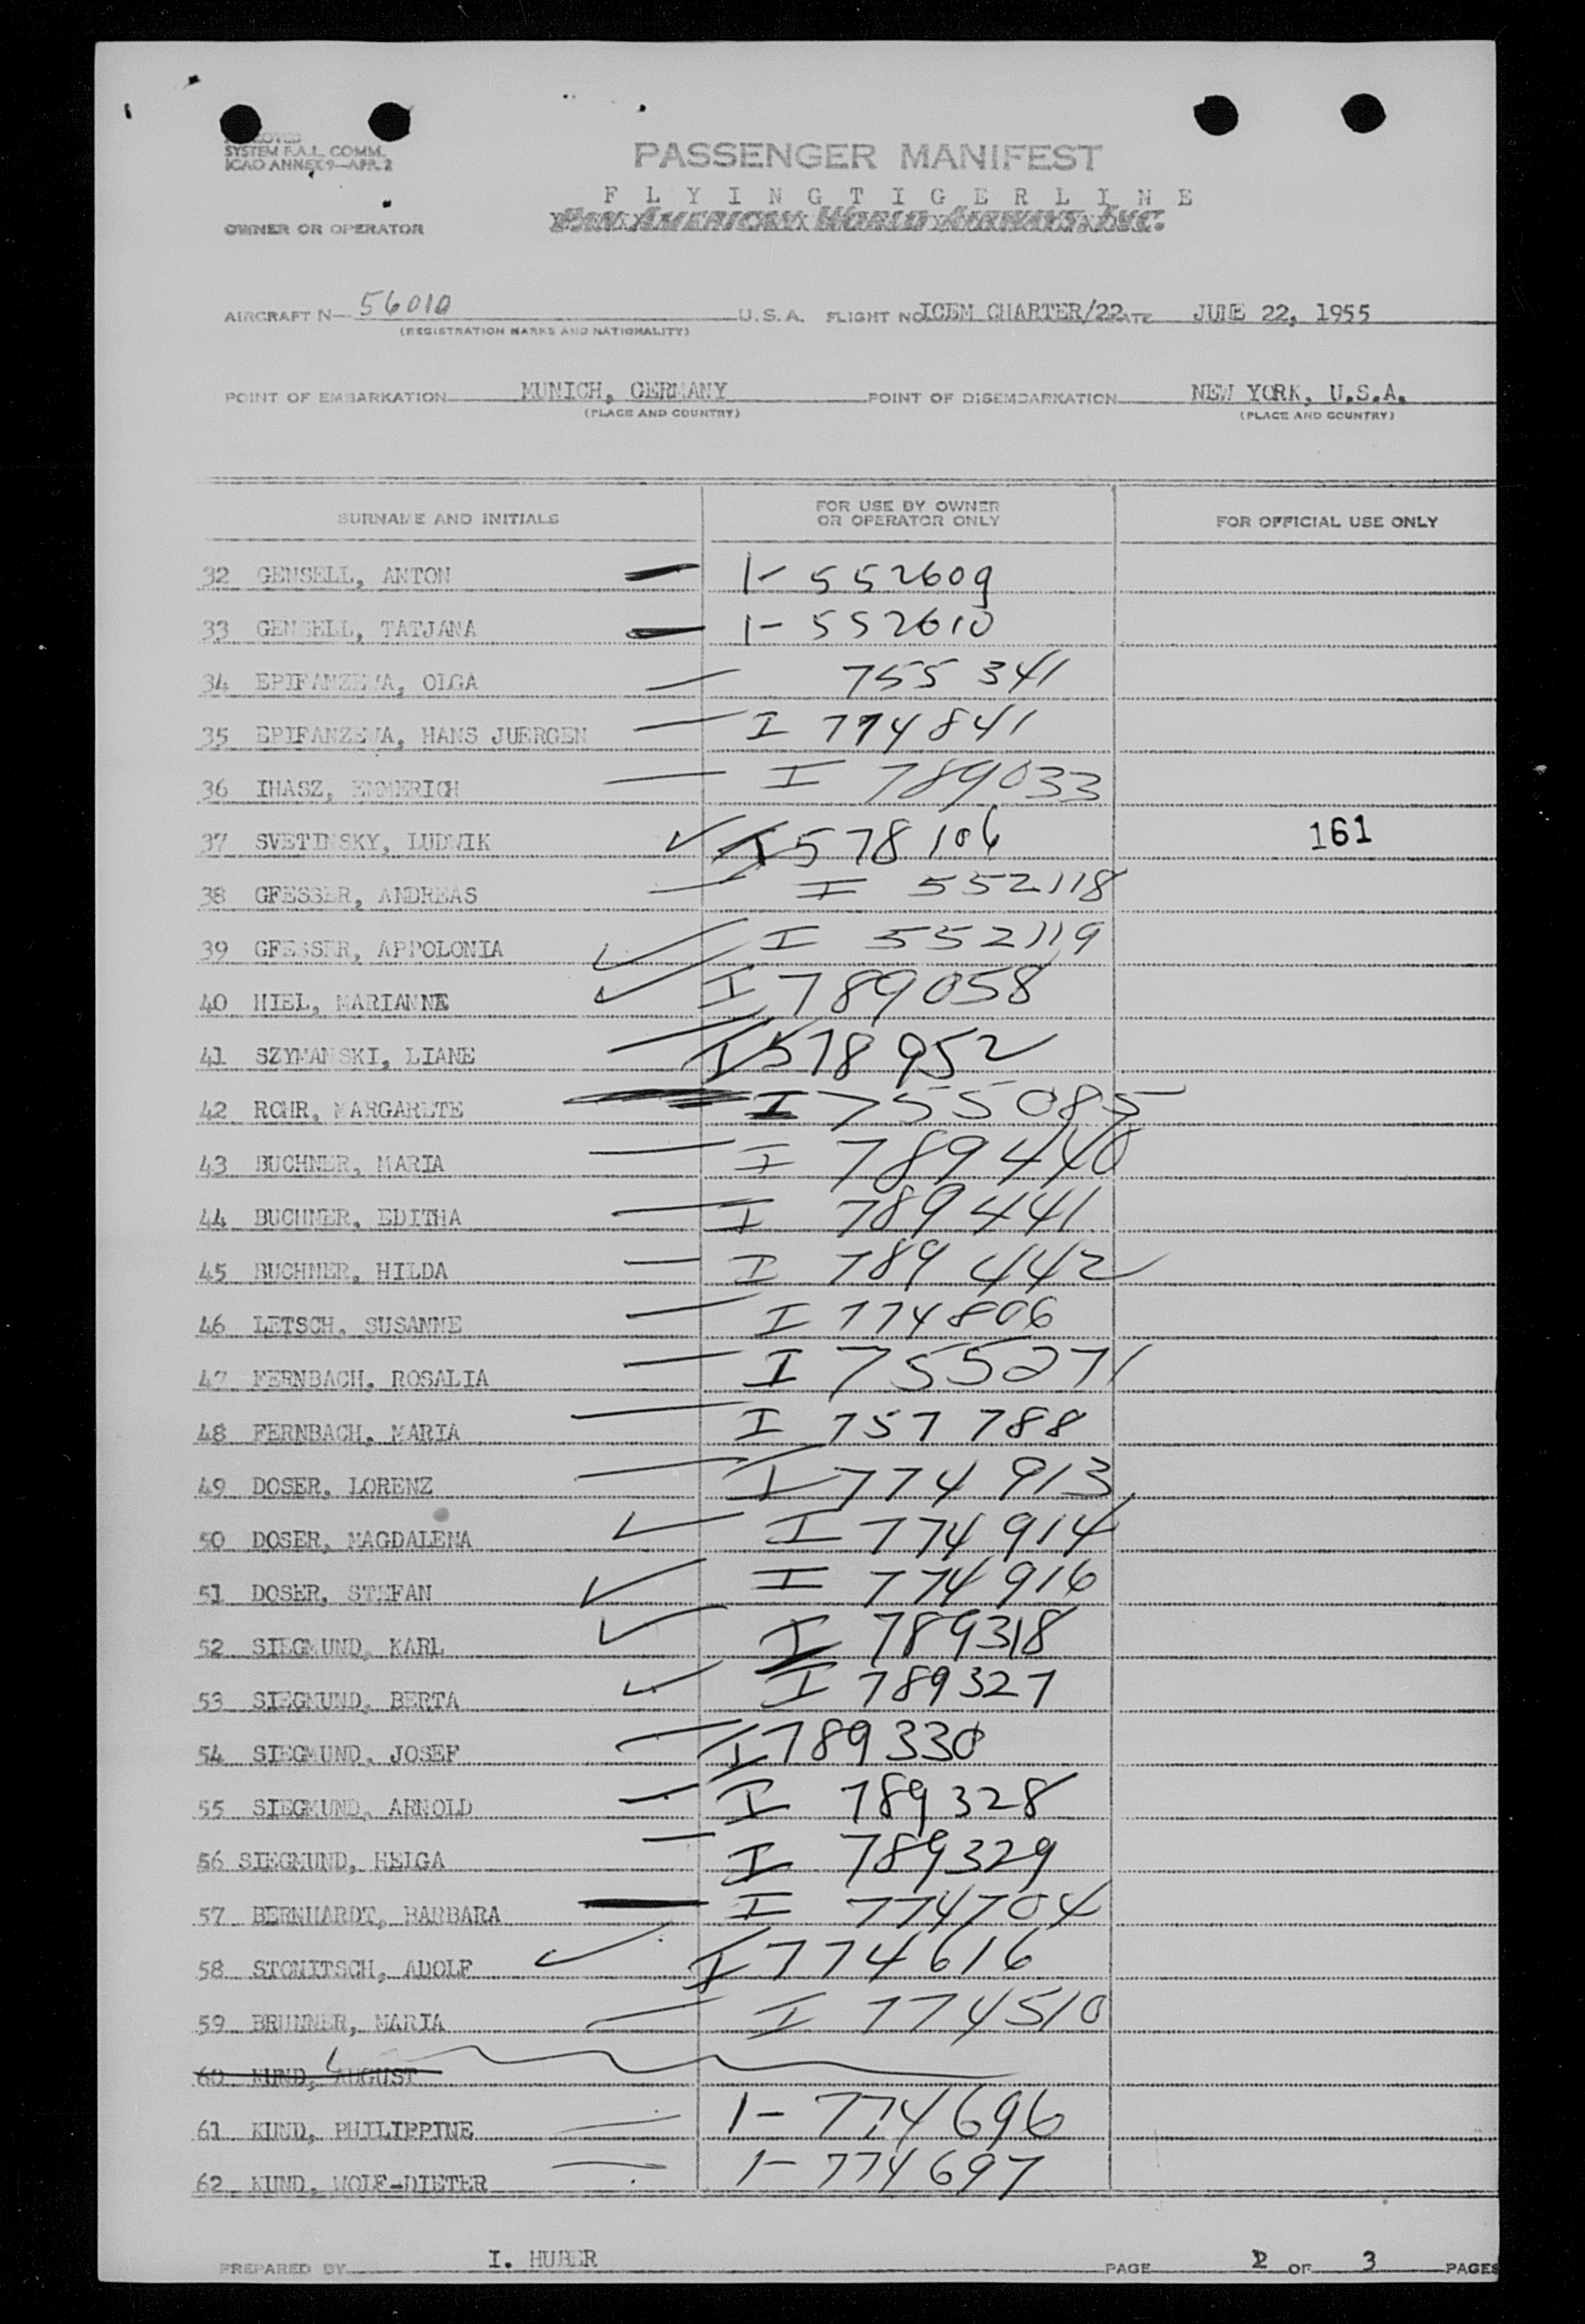 SYSTEM F.A.L. COMM.
ICAO ANNEX 9—APR. 2
PASSENGER MANIFEST
F L Y I N G T I G E R L I N E
PAN AMERICAN WORLD AIRWAYS, INC.
OWNER OR OPERATOR
AIRCRAFT N— 56010 U.S.A. FLIGHT NO ICEM CHARTER/22 ATE JUNE 22, 1955
(REGISTRATION MARKS AND NATIONALITY)
POINT OF EMBARKATION MUNICH, GERMANY POINT OF DISEMBARKATION NEW YORK, U.S.A.
(PLACE AND COUNTRY) (PLACE AND COUNTRY)
SURNAME AND INITIALS FOR USE BY OWNER OR OPERATOR ONLY FOR OFFICIAL USE ONLY
32 GENSELL, ANTON 1- 552609
33 GENSELL, TATJANA 1- 552610
34 EPIFANZEWA, OLGA 755 341
35 EPIFANZEWA, HANS JUERGEN I 774841
36 IHASZ, EMMERICH I 789033
37 SVETINSKY, LUDWIK I 578106 161
38 GFESSER, ANDREAS I 552118
39 GFESSER, APPOLONIA I 552119
40 HIEL, MARIANNE I 789058
41 SZYMANSKI, LIANE I 578952
42 ROHR, MARGARETE I 755085
43 BUCHNER, MARIA I 789440
44 BUCHNER, EDITHA I 789441
45 BUCHNER, HILDA I 789 442
46 LETSCH, SUSANNE I 774806
47 FERNBACH, ROSALIA I 755271
48 FERNBACH, MARIA I 757 788
49 DOSER, LORENZ I 774 913
50 DOSER, MAGDALENA I 774914
51 DOSER, STEFAN I 774916
52 SIEGMUND, KARL I 789318
53 SIEGMUND, BERTA I 789327
54 SIEGMUND, JOSEF I 789330
55 SIEGMUND, ARNOLD I 789328
56 SIEGMUND, HELGA I 789329
57 BERNHARDT, BARBARA I 774704
58 STONITSCH, ADOLF I 774616
59 BRUNNER, MARIA I 774510
60 KUND, AUGUST
61 KUND, PHILIPPINE 1- 774696
62 KUND, WOLF-DIETER 1- 774697
PREPARED BY I. HUBER PAGE 2 OF 3 PAGES